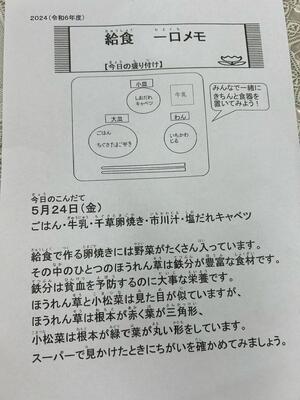 2024(令和6年度)
給食 一口メモ
【今日の盛り付け】
小皿
しおだれ
キャベツ
牛乳
みんなで一緒に
きちんと食器を
置いてみよう!
大皿
ごはん
ちぐさたまごやき
わん
いちかわ
じる
今日のこんだて
5月24日(金)
ごはん・牛乳・千草卵焼き・市川汁・塩だれキャベツ
給食で作る卵焼きには野菜がたくさん入っています。
その中のひとつのほうれん草は鉄分が豊富な食材です。
鉄分は貧血を予防するのに大事な栄養です。
ほうれん草と小松菜は見た目が似ていますが、
ほうれん草は根本が赤く葉が三角形、
小松菜は根本が緑で葉が丸い形をしています。
スーパーで見かけたときにちがいを確かめてみましょう。